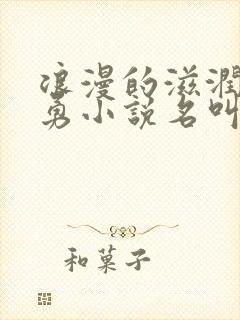 浪漫的滋润
勇小说名叫
和菓子